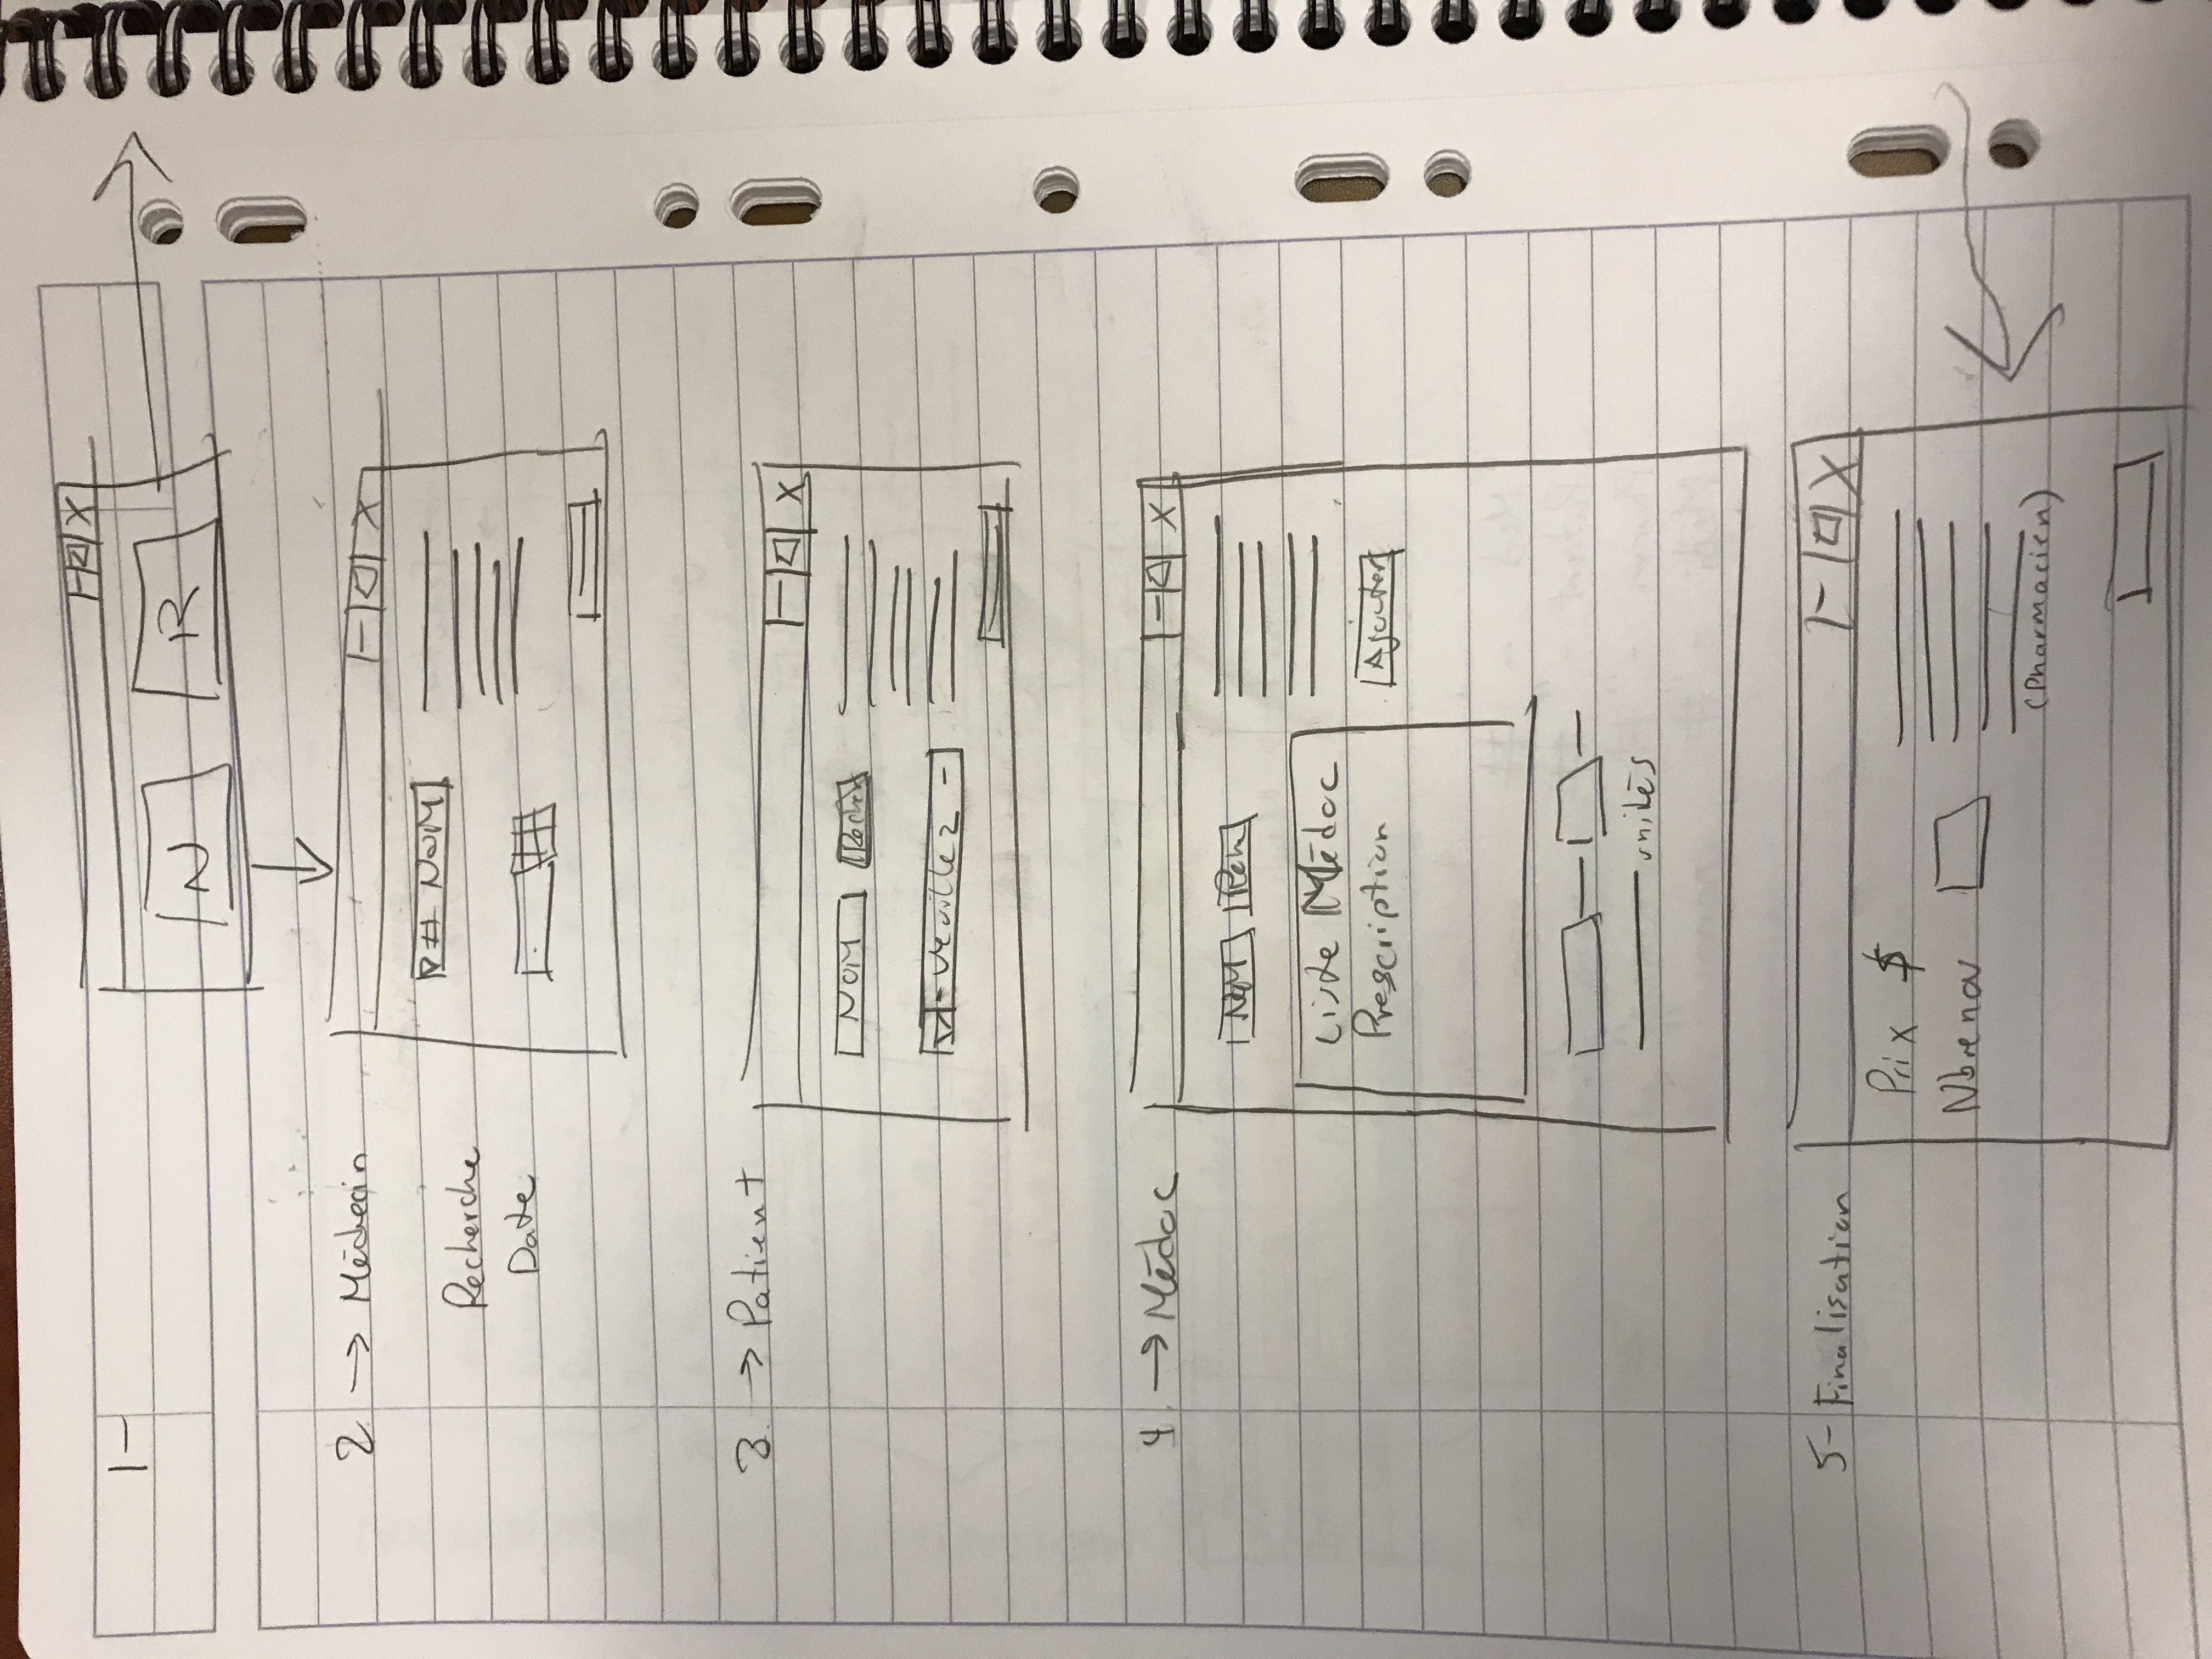 1-
N R
2. → Médecin
# NOM
Recherche
Date
3. → Patient
NOM
- Veuillez -
4. → Médoc
NOM
Liste Médoc
Prescription
Ajouter
unités
5- Finalisation
Prix $
Nbrenov
(Pharmacien)